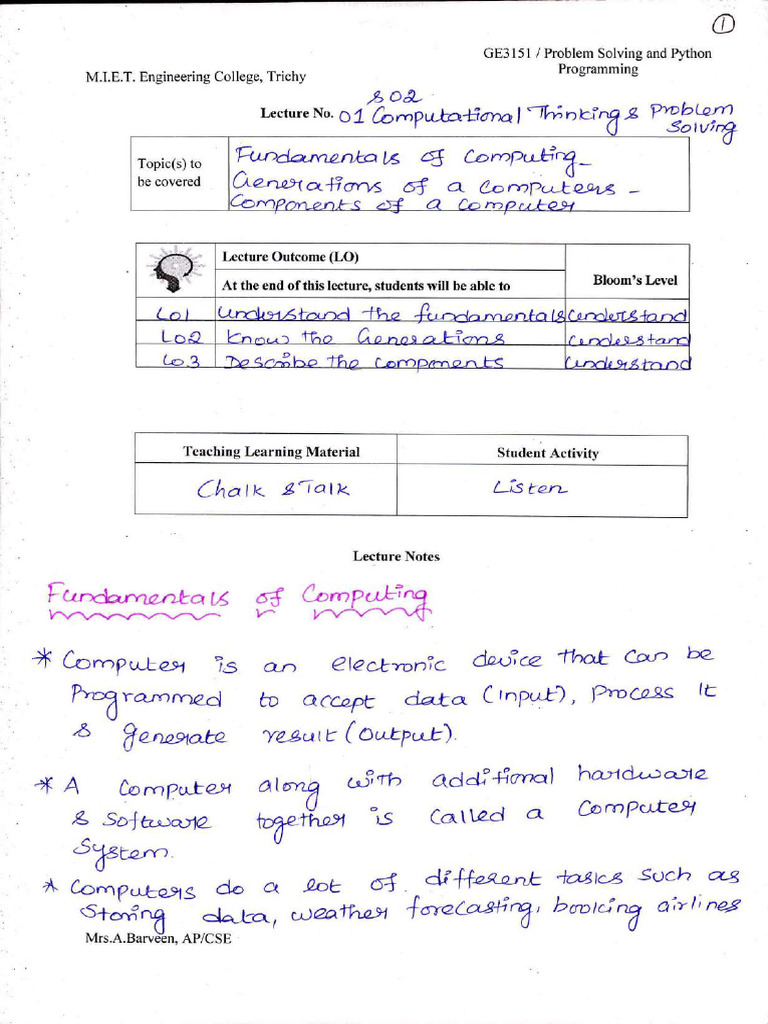 1
GE3151 / Problem Solving and Python
Programming
M.I.E.T. Engineering College, Trichy
& 02
Lecture No. 01 Computational Thinking & Problem
Solving
Topic(s) to be covered
Fundamentals of Computing -
Generations of a computers -
Components of a computer
Lecture Outcome (LO)
At the end of this lecture, students will be able to
Bloom's Level
LO1 Understand the fundamentals Understand
LO2 Know the Generations Understand
LO3 Describe the components Understand
Teaching Learning Material Student Activity
Chalk & Talk Listen
Lecture Notes
Fundamentals of Computing
* Computer is an electronic device that can be
Programmed to accept data (Input), Process It
& generate result (Output).
* A computer along with additional hardware
& software together is called a computer
System.
* Computers do a lot of different tasks such as
Storing data, weather forecasting, booking airlines
Mrs.A.Barveen, AP/CSE